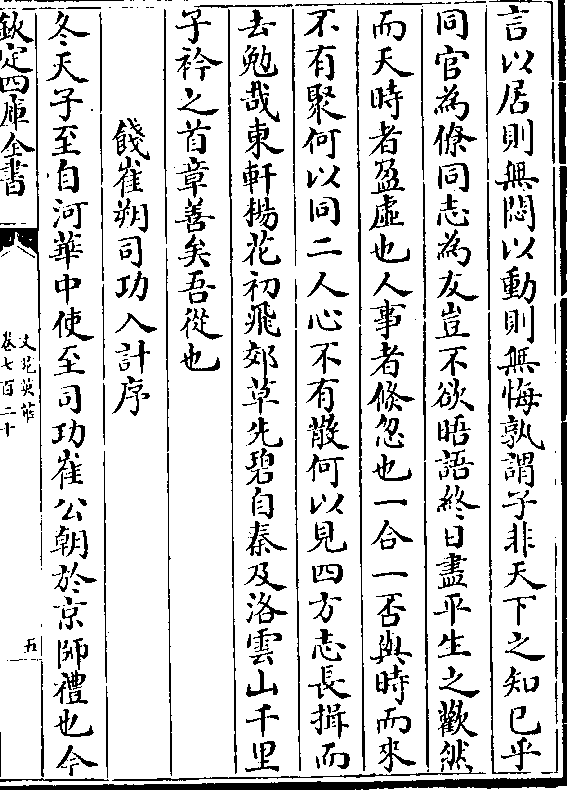 言以居則無悶以動則無悔孰謂子非天下之知已乎
同官為僚同志為友豈不欲晤語終日盡平生之歡然
而天時者盈虛也人事者倐忽也一合一否與時而來
不有聚何以同二人心不有散何以見四方志長揖而
去勉哉東軒楊花初飛郊草先碧自秦及洛雲山千里
子衿之首章善矣吾從也
餞崔朔司功入計序
冬天子至自河華中使至司功崔公朝於京師禮也今
欽定四庫全書
文苑英華
卷七百二十
五